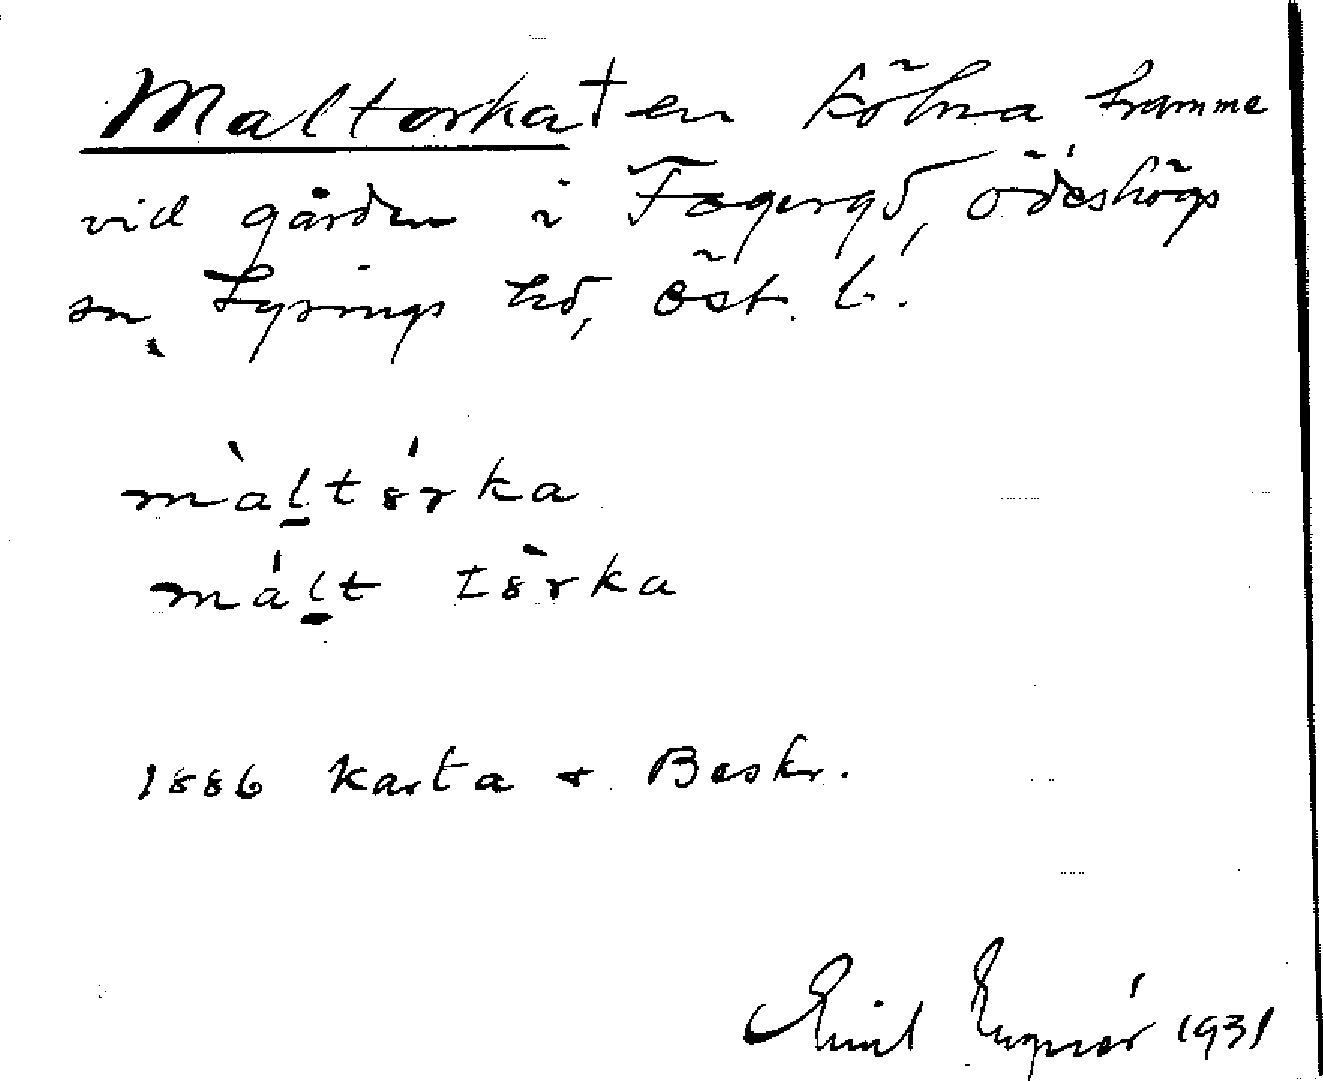 Maltorka† en kölna hamme
vid gården i Fagergd, ödeshögs
sn, Lysings hd, öst. l.
màḻtórka
máḻt tòrka
1886 karta & Beskr.
Emil 1931